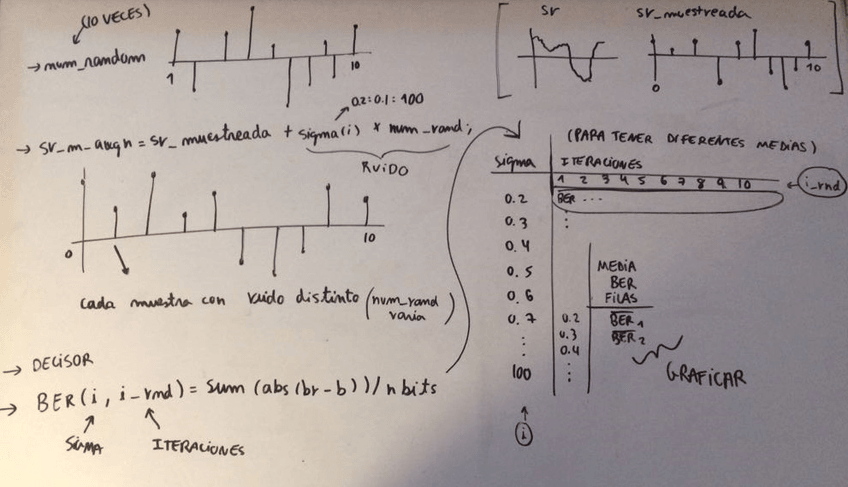 (10 VECES)
→ num_random
1 10
0.2:0.1:100
→ sr_m_awgn = sr_muestreada + sigma(i) * num_rand;
RUIDO
0 10
cada muestra con ruido distinto (num_rand varia)
→ DECISOR
→ BER(i, i_rnd) = sum(abs(br-b))/nbits
SIGMA ITERACIONES
sr sr_muestreada
0 10
(PARA TENER DIFERENTES MEDIAS)
sigma ITERACIONES
1 2 3 4 5 6 7 8 9 10 ← i_rnd
0.2 BER ...
0.3 :
0.4
0.5 MEDIA
BER
0.6 FILAS
0.7 0.2 BER1
0.3 BER2
: 0.4
: :
100 GRAFICAR
i